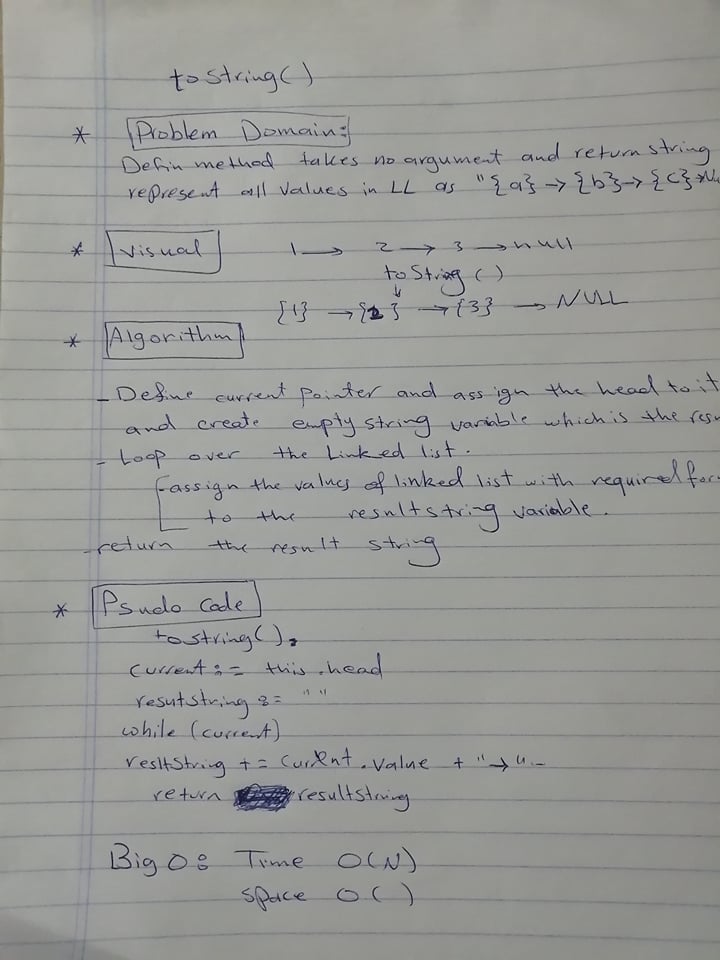 toString()
* Problem Domain:
Defin method takes no argument and return string
represent all values in LL as "{a} → {b} → {c} →
* Visual 1 → 2 → 3 → null
toString()
{1} → {2} → {3} → NULL
* Algorithm
- Define current pointer and assign the head to it
and create empty string variable which is the
- Loop over the Linked list.
- assign the values of linked list with required
to the resultstring variable.
- return the result string
* Psudo code
tostring().
current := this.head
resutstring := " "
while (current)
resltString += current.value + "→"
return resultstring
Big O: Time O(N)
space O( )